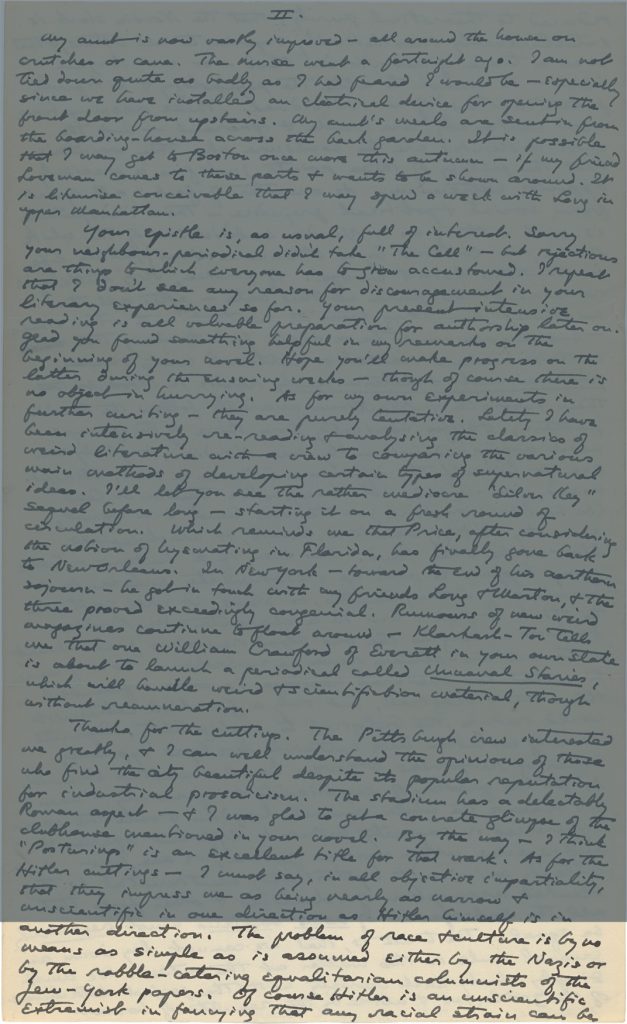 II.
My aunt is now vastly improved — all around the house on
crutches or cane. The nurse went a fortnight ago. I am not
tied down quite as badly as I had feared I would be — especially
since we have installed an electrical device for opening the
front door from upstairs. My aunt's meals are sent in from
the boarding-house across the back garden. It is possible
that I may get to Boston once more this autumn — if my friend
Loveman comes to these parts & wants to be shown around. It
is likewise conceivable that I may spend a week with Long in
upper Manhattan.
Your epistle is, as usual, full of interest. Sorry
your neighbour-periodical didn't take "The Call" — but rejections
are things to which everyone has to grow accustomed. I repeat
that I don't see any reason for discouragement in your
literary experiences so far. Your present intensive
reading is all valuable preparation for authorship later on.
Glad you found something helpful in my remarks on the
beginning of your novel. Hope you'll make progress on the
latter during the ensuing weeks — though of course there is
no object in hurrying. As for my own experiments in
further writing — they are purely tentative. Lately I have
been intensively re-reading & analysing the classics of
weird literature with a view to comparing the various
main methods of developing certain types of supernatural
ideas. I'll let you see the rather mediocre "Silver Key"
sequel before long — starting it on a fresh round of
circulation. Which reminds me that Price, after considering
the notion of hysmating in Florida, has finally gone back
to New Orleans. In New York — toward the end of his northern
sojourn — he got in touch with my friends Long & Morton, & the
three proved exceedingly congenial. Rumours of new weird
magazines continue to float around — Klarkash-Ton tells
me that one William Crawford of Everett in your own state
is about to launch a periodical called Unusual Stories,
which will handle weird & scientifiction material, though
without remuneration.
Thanks for the cuttings. The Pittsburgh view interested
me greatly, & I can well understand the opinions of those
who find the city beautiful despite its popular reputation
for industrial prosaicism. The stadium has a delectably
Roman aspect — & I was glad to get a concrete glimpse of the
clubhouse mentioned in your novel. By the way — I think
"Posturings" is an excellent title for that work. As for the
Hitler cuttings — I must say, in all objective impartiality,
that they impress me as being nearly as narrow &
unscientific in one direction as Hitler himself is in
another direction. The problem of race & culture is by no
means as simple as is assumed either by the Nazis or
by the rabble-catering equalitarian columnists of the
Jew-York papers. Of course Hitler is an unscientific
extremist in fancying that any racial strain can be